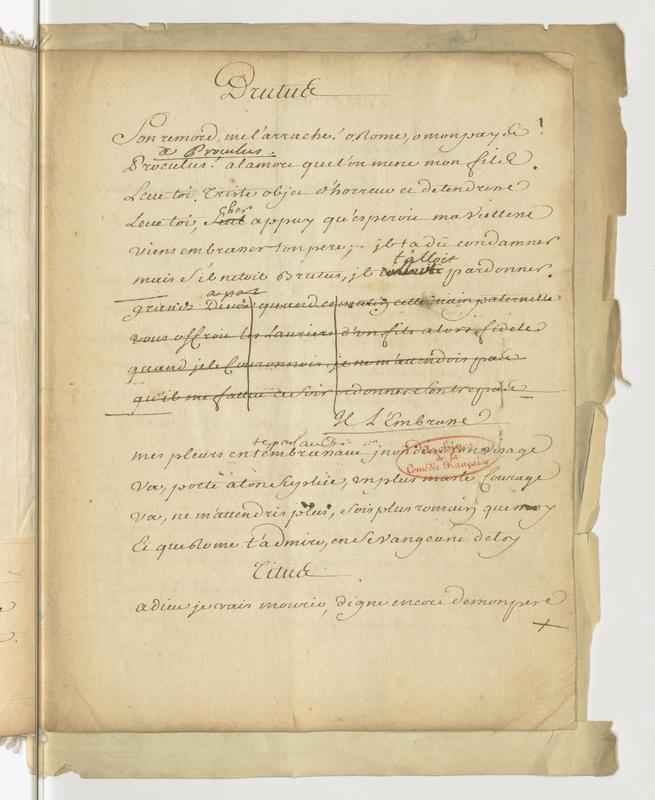 Brutus
Son remord, me l'arrache! o Rome, o mon pays!
a Proculus.
Proculus! a la mort que l'on mene mon fils.
Leve toi, triste objet d'horreur et de tendresse
cher
Leve toi, seul appuy qu'esperoit ma vieillesse
viens embrasser ton pere; il t'a dû condamner
t'alloit
mais s'il n'etoit Brutus, il pardonner.
a part
grands Dieux quand ce matin cette main paternelle
vous offroit les Lauriers d'un fils alors fidele
quand je le Couronnois je ne m'attendois pas
qu'il me fallut ce soir ordonner son trepas
Il L'Embrasse
mes pleurs en t'embrassant inondent ton visage
va, porte a ton suplice, un plus masle Courage
va, ne m'attendris plus, sois plus romain que moy
Et que Rome t'admire, en se vangeant de toy
Titus
adieu je vais mourir, digne encore de mon pere
Archives
de la
Comédie Française